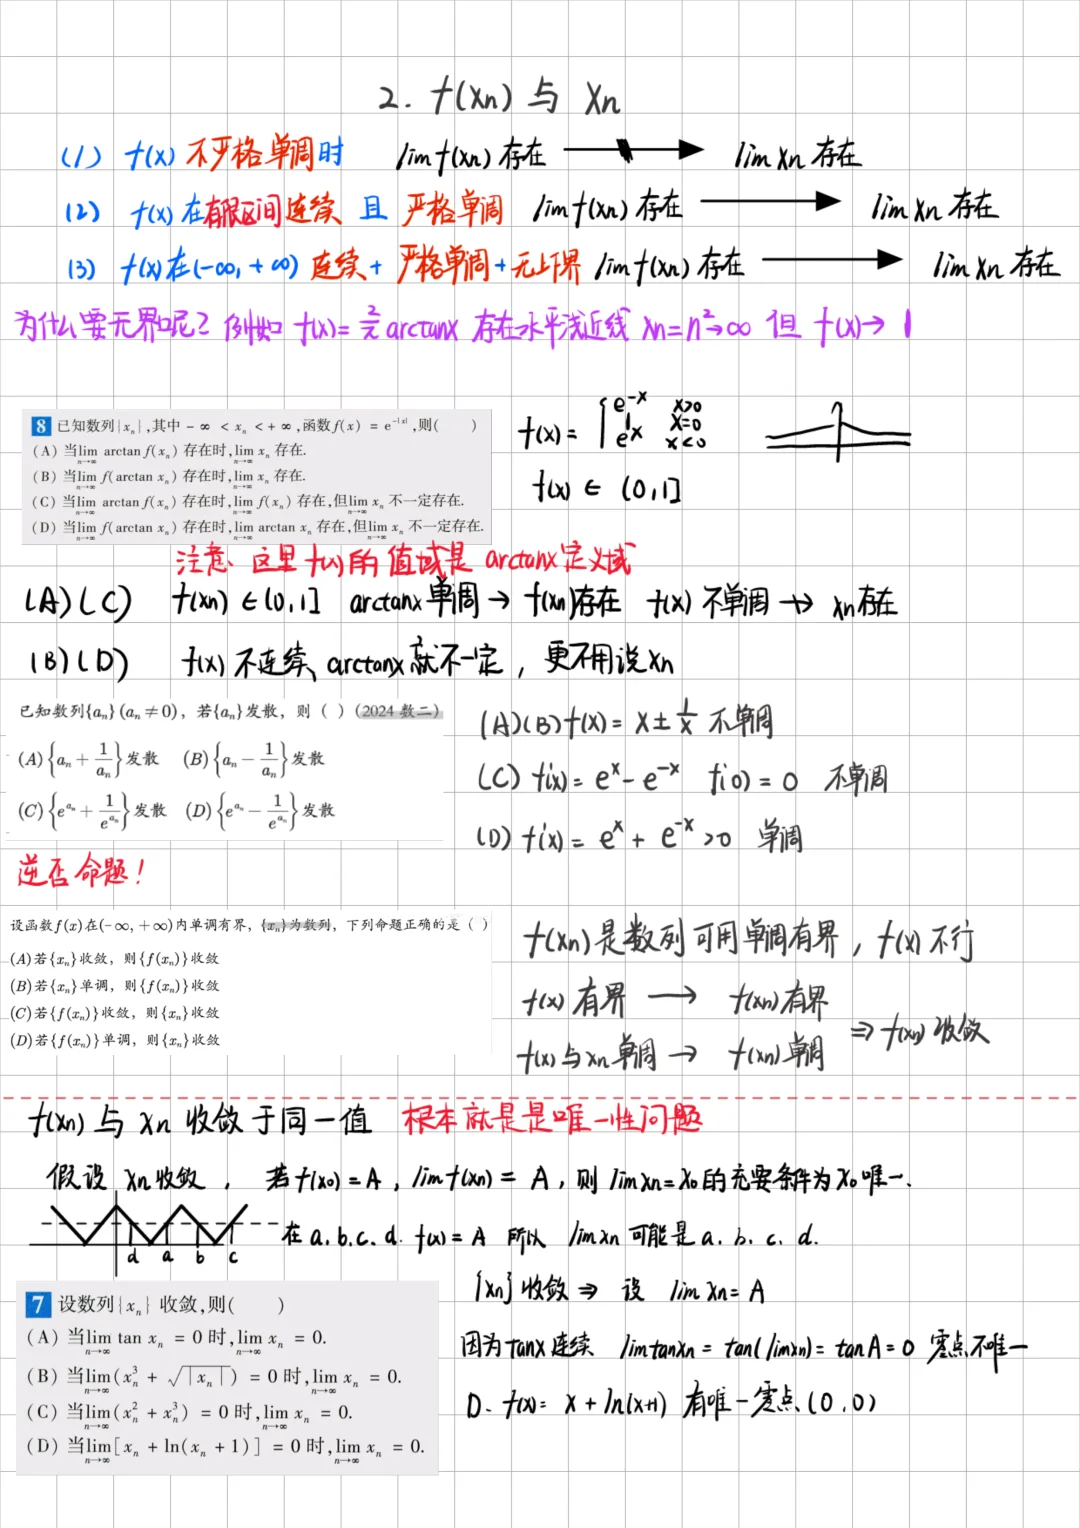 2. f(xn) 与 xn
(1) f(x) 不严格单调时 lim f(xn) 存在 lim xn 存在
(2) f(x) 在有限区间连续 且 严格单调 lim f(xn) 存在 → lim xn 存在
(3) f(x)在(-∞,+∞) 连续+严格单调+无上下界 lim f(xn) 存在 → lim xn 存在
为什么要无界呢? 例如 f(x)=2/π arctanx 存在水平浅近线 xn=n²→∞ 但 f(x)→1
8 已知数列{xₙ},其中 -∞<xₙ<+∞,函数f(x)=e^{-|x|},则( )
(A) 当lim_{n→∞} arctan f(xₙ) 存在时,lim_{n→∞} xₙ 存在.
(B) 当lim_{n→∞} f(arctan xₙ) 存在时,lim_{n→∞} xₙ 存在.
(C) 当lim_{n→∞} arctan f(xₙ) 存在时,lim_{n→∞} f(xₙ) 存在,但lim_{n→∞} xₙ 不一定存在.
(D) 当lim_{n→∞} f(arctan xₙ) 存在时,lim_{n→∞} arctan xₙ 存在,但lim_{n→∞} xₙ 不一定存在.
f(x)= { e^{-x} x>0
1 x=0
e^x x<0
f(x) ∈ (0,1]
注意、这里 f(x)的值域是 arctanx定义域
(A)(C) f(xn)∈(0,1] arctanx单调→f(xn)存在 f(x)不单调 ↛ xn存在
(B)(D) f(x)不连续、arctanx就不一定,更不用说xn
已知数列{aₙ}(aₙ≠0),若{aₙ}发散,则( )(2024数二)
(A){aₙ+1/aₙ}发散 (B){aₙ-1/aₙ}发散
(C){e^{aₙ}+1/e^{aₙ}}发散 (D){e^{aₙ}-1/e^{aₙ}}发散
(A)(B) f(x)=x±1/x 不单调
(C) f'(x)=e^x-e^{-x} f'(0)=0 不单调
(D) f'(x)=e^x+e^{-x}>0 单调
逆否命题!
设函数f(x)在(-∞,+∞)内单调有界,{xₙ}为数列,下列命题正确的是( )
(A)若{xₙ}收敛,则{f(xₙ)}收敛
(B)若{xₙ}单调,则{f(xₙ)}收敛
(C)若{f(xₙ)}收敛,则{xₙ}收敛
(D)若{f(xₙ)}单调,则{xₙ}收敛
f(xn)是数列可用单调有界,f(x)不行
f(x)有界 → f(xn)有界
f(x)与xn单调→f(xn)单调
⇒f(xn)收敛
f(xn)与xn收敛于同一值 根本就是是唯一性问题
假设 xn收敛, 若f(x₀)=A,lim f(xn)=A,则lim xn=x₀的充要条件为x₀唯一.
d a b c
在a.b.c.d. f(x)=A 所以 lim xn可能是a.b.c.d.
{xn}收敛⇒设 lim xn=A
因为tanx连续 lim tanxn=tan(lim xn)=tanA=0 零点不唯一
D. f(x)=x+ln(x+1) 有唯一零点(0,0)
7 设数列{xₙ}收敛,则( )
(A) 当lim_{n→∞} tan xₙ=0时,lim_{n→∞} xₙ=0.
(B) 当lim_{n→∞}(xₙ³+√|xₙ|)=0时,lim_{n→∞} xₙ=0.
(C) 当lim_{n→∞}(xₙ²+xₙ³)=0时,lim_{n→∞} xₙ=0.
(D) 当lim_{n→∞}[xₙ+ln(xₙ+1)]=0时,lim_{n→∞} xₙ=0.